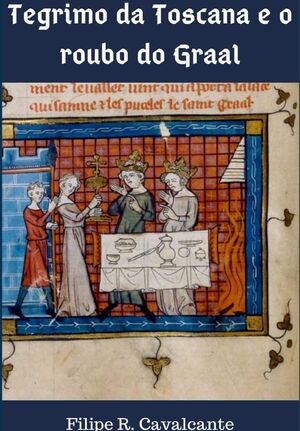 Tegrimo da Toscana e o
roubo do Graal
ment le uallet uint qui aporta la lance
qui saine & les puceles le saint graal
Filipe R. Cavalcante